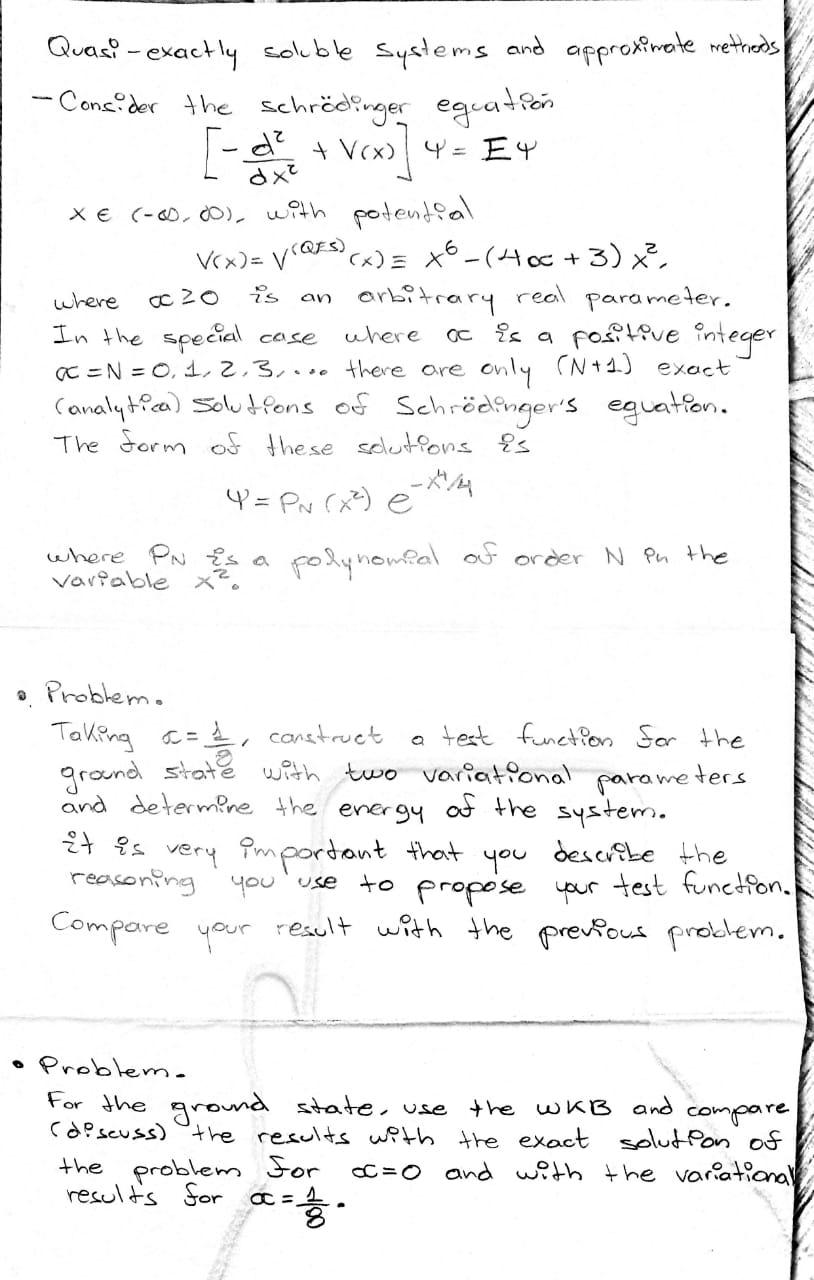 Quasi-exactly soluble systems and approximate methods
- Consider the schrödinger equation
[-d²/dx² + V(x)] Ψ = EΨ
x ∈ (-∞, ∞), with potential
V(x) = V^(QES)(x) ≡ x⁶ - (4α + 3) x²,
where α ≥ 0 is an arbitrary real parameter.
In the special case where α is a positive integer
α = N = 0, 1, 2, 3, ... there are only (N+1) exact
(analytical) solutions of Schrödinger's equation.
The form of these solutions is
Ψ = P_N (x²) e^(-x⁴/4)
where P_N is a polynomial of order N in the
variable x².
• Problem.
Taking α = 1/8, construct a test function for the
ground state with two variational parameters
and determine the energy of the system.
it is very important that you describe the
reasoning you use to propose your test function.
Compare your result with the previous problem.
• Problem.
For the ground state, use the WKB and compare
(discuss) the results with the exact solution of
the problem for α=0 and with the variational
results for α = 1/8.